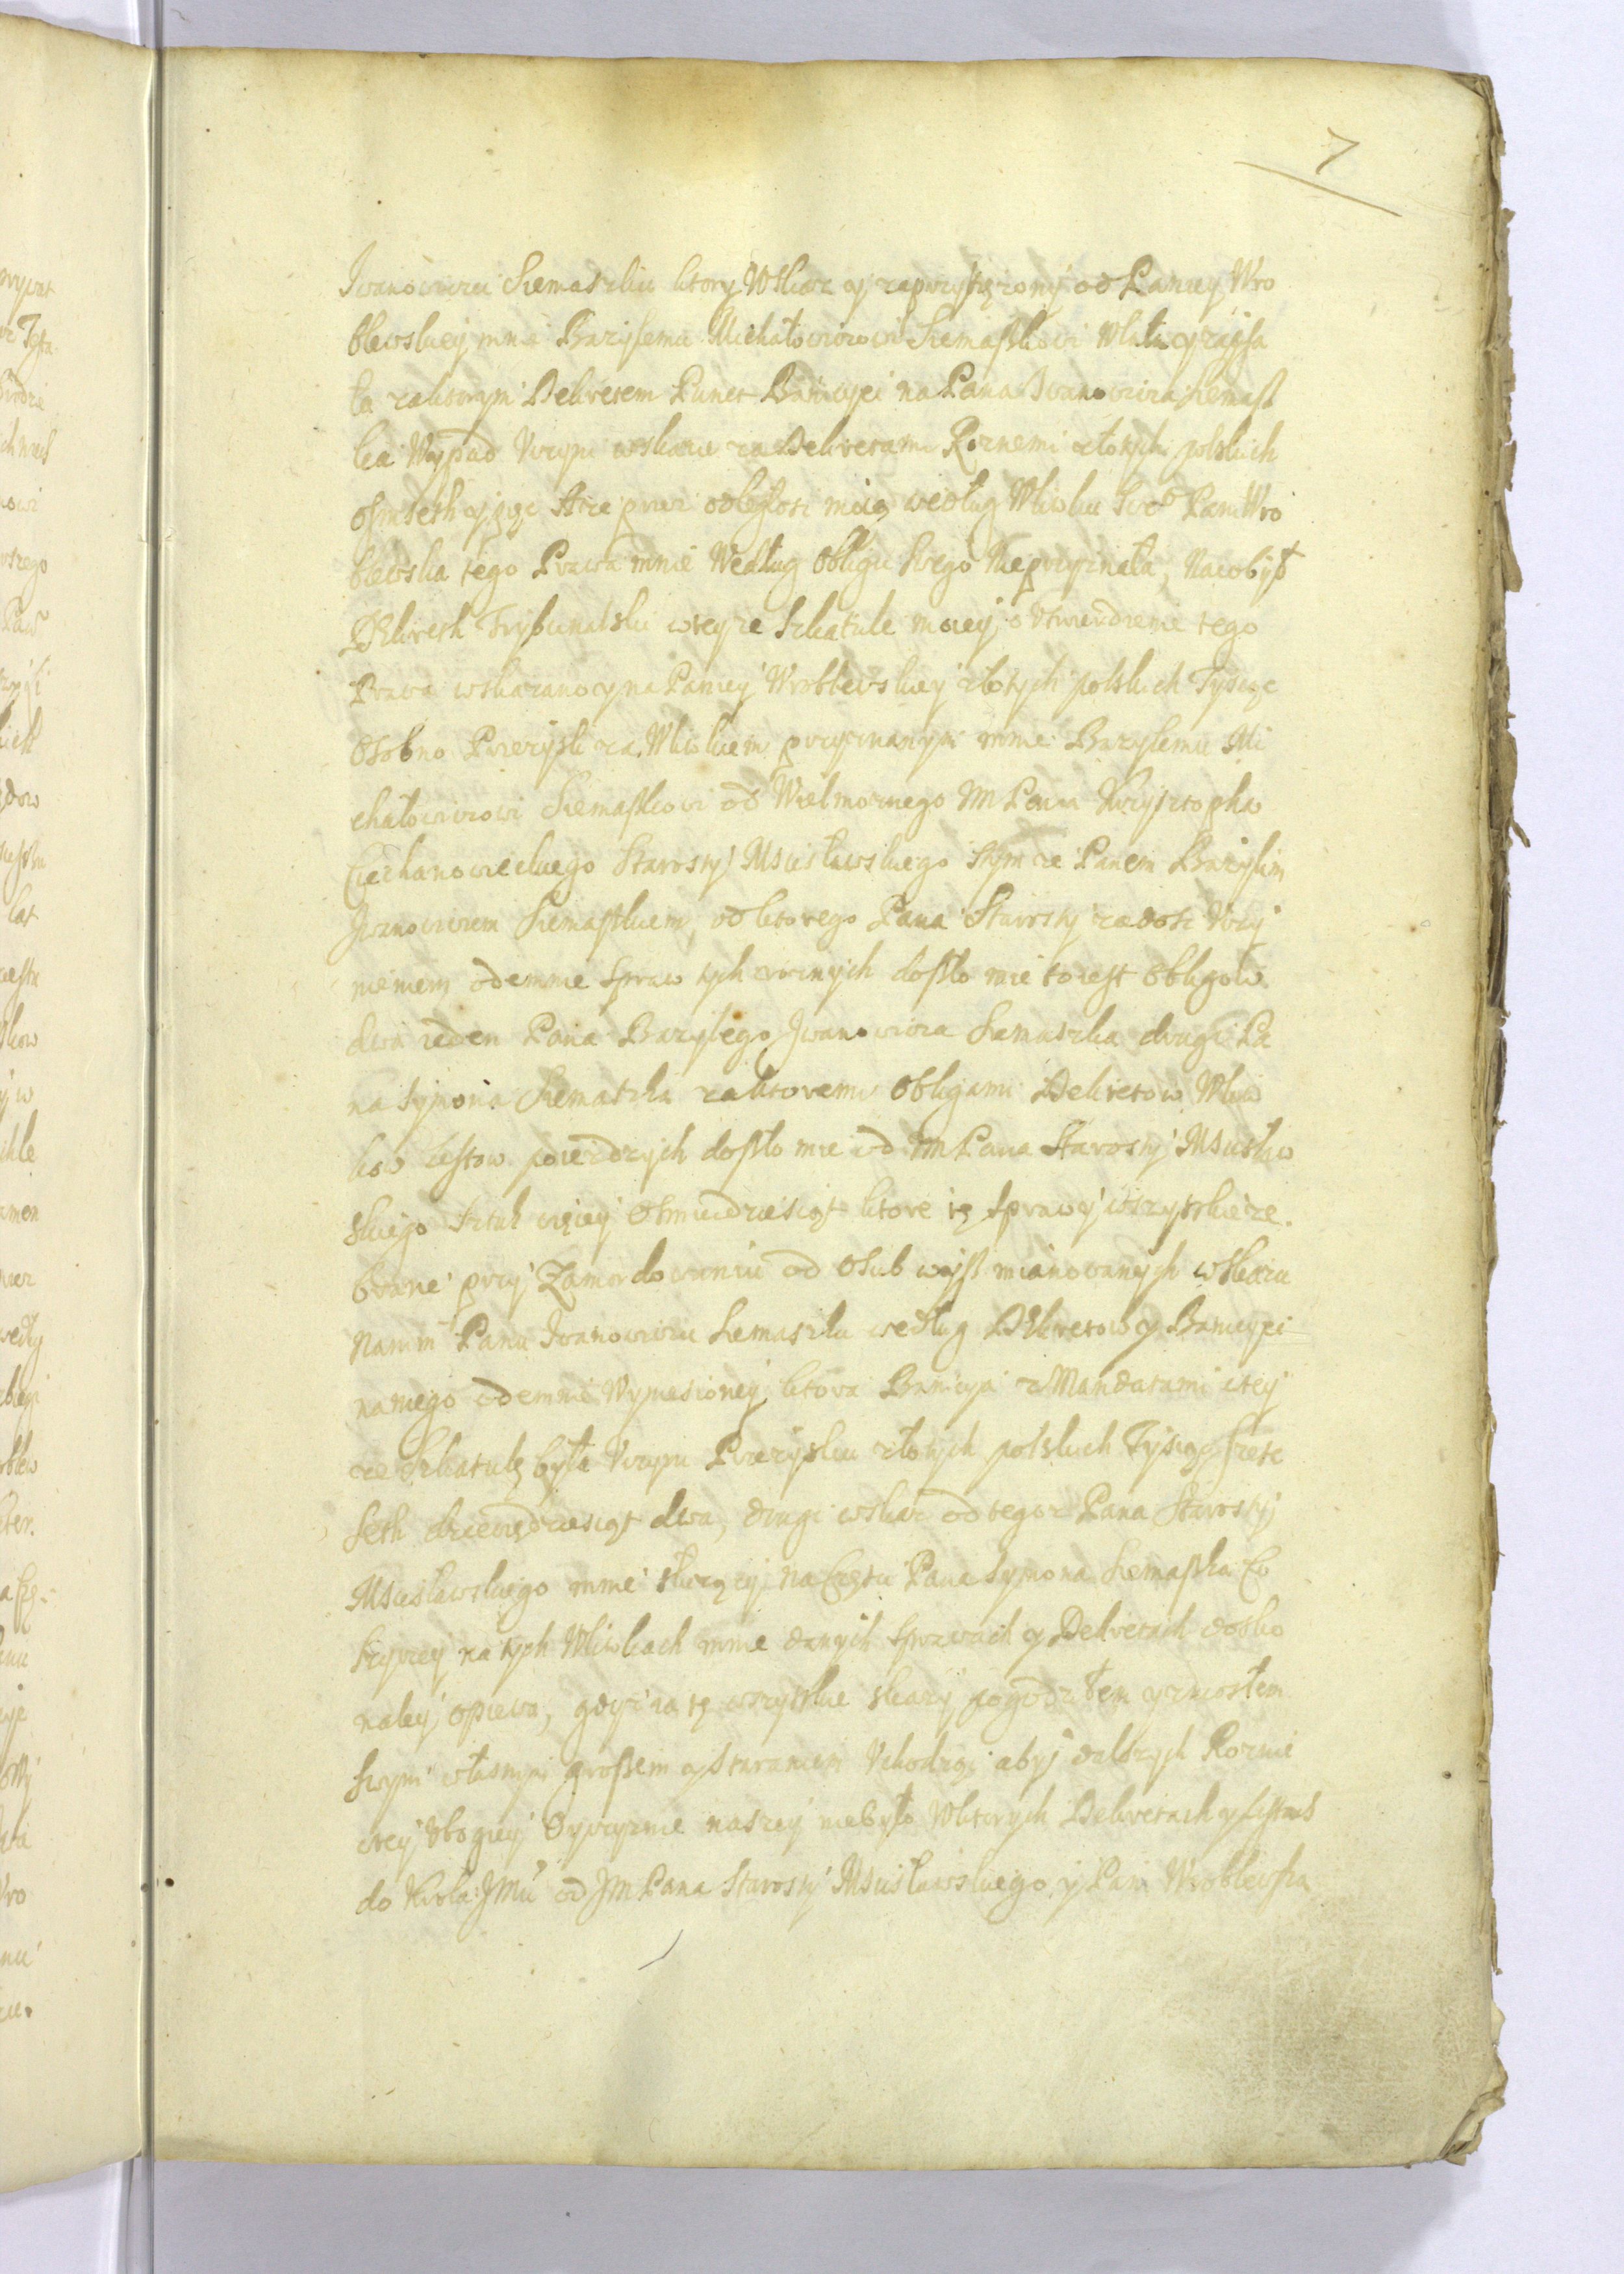 7
Iwanowiczu Siemaszku ktory Wskaz y zaprzysiężony od Paniey Wro
blewskiey mnie Bazylemu Michałowiczowi Siemaszkowi Wlała y zapisa
ła za ktorym Dekretem Punct Banicyei na Pana Iwanowicza Siemasz
ka Wypadł Uczyni wskazu za Dekretami Roznemi złotych polskich
osmset y pięc Że przez odległosc moię według Wliwku Swo Pani Wro
blewska tego Prawa mnie Według Obligu swego Nieprzyznała, Na co był
Dekreth Trybunalski w teyze Szkatule moiey o Utwierdzenie tego
Prawa wskazano y na Paniey Wroblewskiey złotych polskich Tysiąc
Osobno Przezysk za Wliwkiem przyznanym mnie Bazylemu Mi
chałowiczowi Siemaszkowi od Wielmoznego IM Pana Krzysztopha
Ciechanowieckiego Starosty Mscisławskiego s tym ze Panem Bazylim
Iwanowiczem Siemaszkiem, od ktorego Pana Starosty za dosc Uczy
nieniem odemnie Spraw tych roznych doszło mie to iest Obligow
dwa ieden Pana Bazylego Iwanowicza Siemaszka drugi Pa
na Symona Siemaszka za ktoremi Obligami Dekretow Wliw
kow Listow poiezdzych doszło mie od IM Pana Starosty Mscisław
skiego Sztuk więcey Osmiudziesiąt ktore tę Sprawy wszytskie ze
brane przy Zamordowaniu od Osub wysz mianowanych wskazu
Na mm Panu Iwanowiczu Siemaszku według Dekretow y Banicyei
na niego odemnie Wyniesioney ktora Banicya z Mandatami w tey
ze Szkatulę była Uczyni Przezysku złotych polskich Tysiąc sześc
seth dziewiędziesiąt dwa, drugi wskaz od tegoz Pana Starosty
Mscisławskiego mnie słuzący na Częsci Pana Symona Siemaszka Co
szyrzey na tych Wliwkach mnie danych Sprawach y Dekretach dosko
naley opiewa, gdyz ia tę wszytskie skazy pogodziłem y zniosłem
swym własnym groszem y staraniem Uchodząc aby dalszych Roznic
w tey Ubogiey Oyczyznie naszey niebyło W ktorych Dekretach y Listach
do Krola IMci od IM Pana Starosty Mscisławskiego y Pani Wroblewska